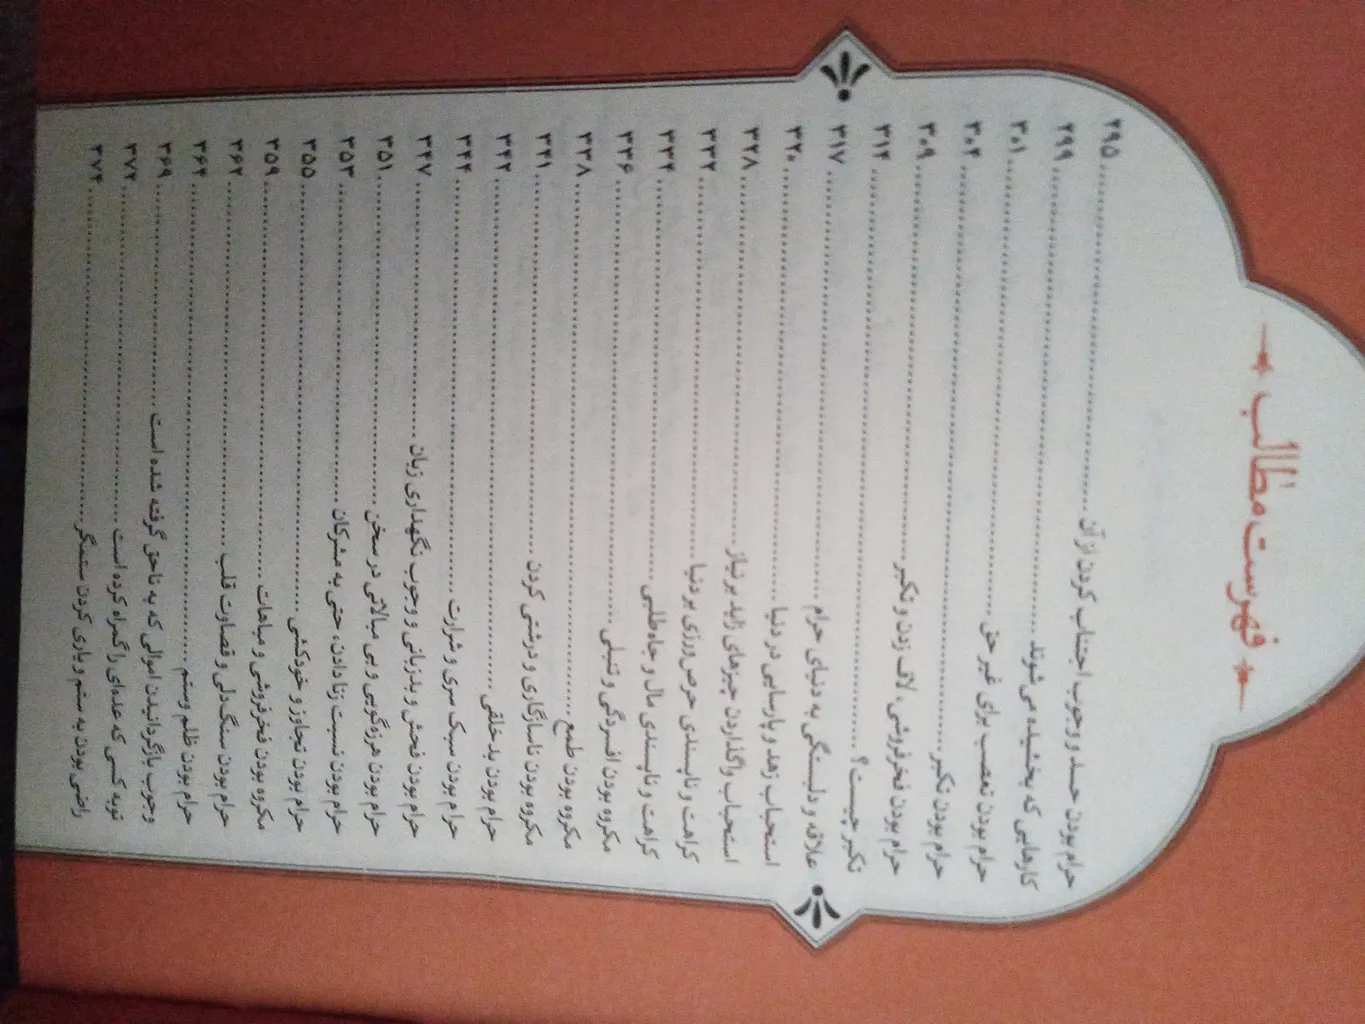 فهرست مطالب
حرام بودن حسد و وجوب اجتناب کردن از آن ........ ۲۹۵
کارهایی که بخشیده می‌شوند ........ ۲۹۹
حرام بودن تعصب برای غیر حق ........ ۳۰۱
حرام بودن تکبر ........ ۳۰۴
حرام بودن فخرفروشی، لاف زدن و تکبر ........ ۳۰۹
تکبر چیست؟ ........ ۳۱۴
علاقه و دلبستگی به دنیای حرام ........ ۳۱۷
استحباب زهد و پارسایی در دنیا ........ ۳۲۰
استحباب واگذاردن چیزهای زاید بر نیاز ........ ۳۲۸
کراهت و ناپسندی حرص‌ورزی بر دنیا ........ ۳۳۲
کراهت و ناپسندی مال و جاه‌طلبی ........ ۳۳۴
مکروه بودن افسردگی و تنبلی ........ ۳۳۶
مکروه بودن طمع ........ ۳۳۸
مکروه بودن ناسازگاری و درشتی کردن ........ ۳۴۱
حرام بودن بدخلقی ........ ۳۴۲
حرام بودن سبک سری و شرارت ........ ۳۴۴
حرام بودن فحش و بدزبانی و وجوب نگهداری زبان ........ ۳۴۷
حرام بودن هرزه‌گویی و بی مبالاتی در سخن ........ ۳۵۱
حرام بودن نسبت زنا دادن، حتی به مشرکان ........ ۳۵۳
حرام بودن تجاوز و خودکشی ........ ۳۵۵
مکروه بودن فخرفروشی و مباهات ........ ۳۵۹
حرام بودن سنگ‌دلی و قصاوت قلب ........ ۳۶۲
حرام بودن ظلم وستم ........ ۳۶۴
وجوب بازگردانیدن اموالی که به ناحق گرفته شده است ........ ۳۶۹
توبه کسی که عده‌ای را گمراه کرده است ........ ۳۷۲
راضی بودن به ستم و یاری کردن ستمگر ........ ۳۷۴